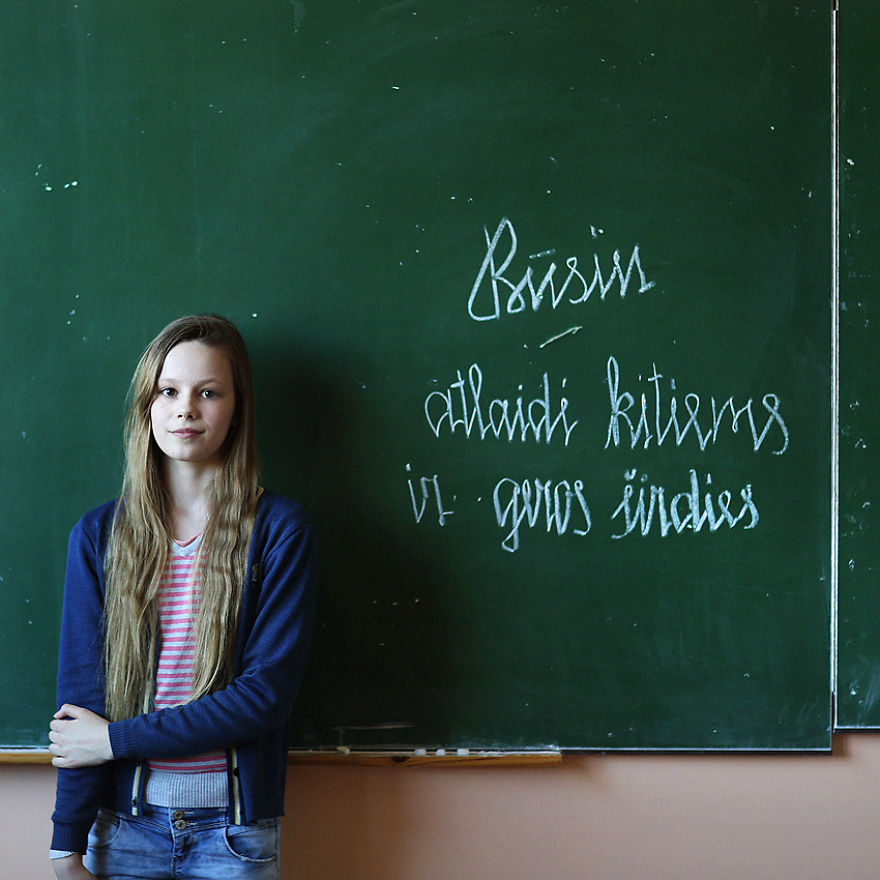 Būsiu
atlaidi kitiems
ir geros širdies